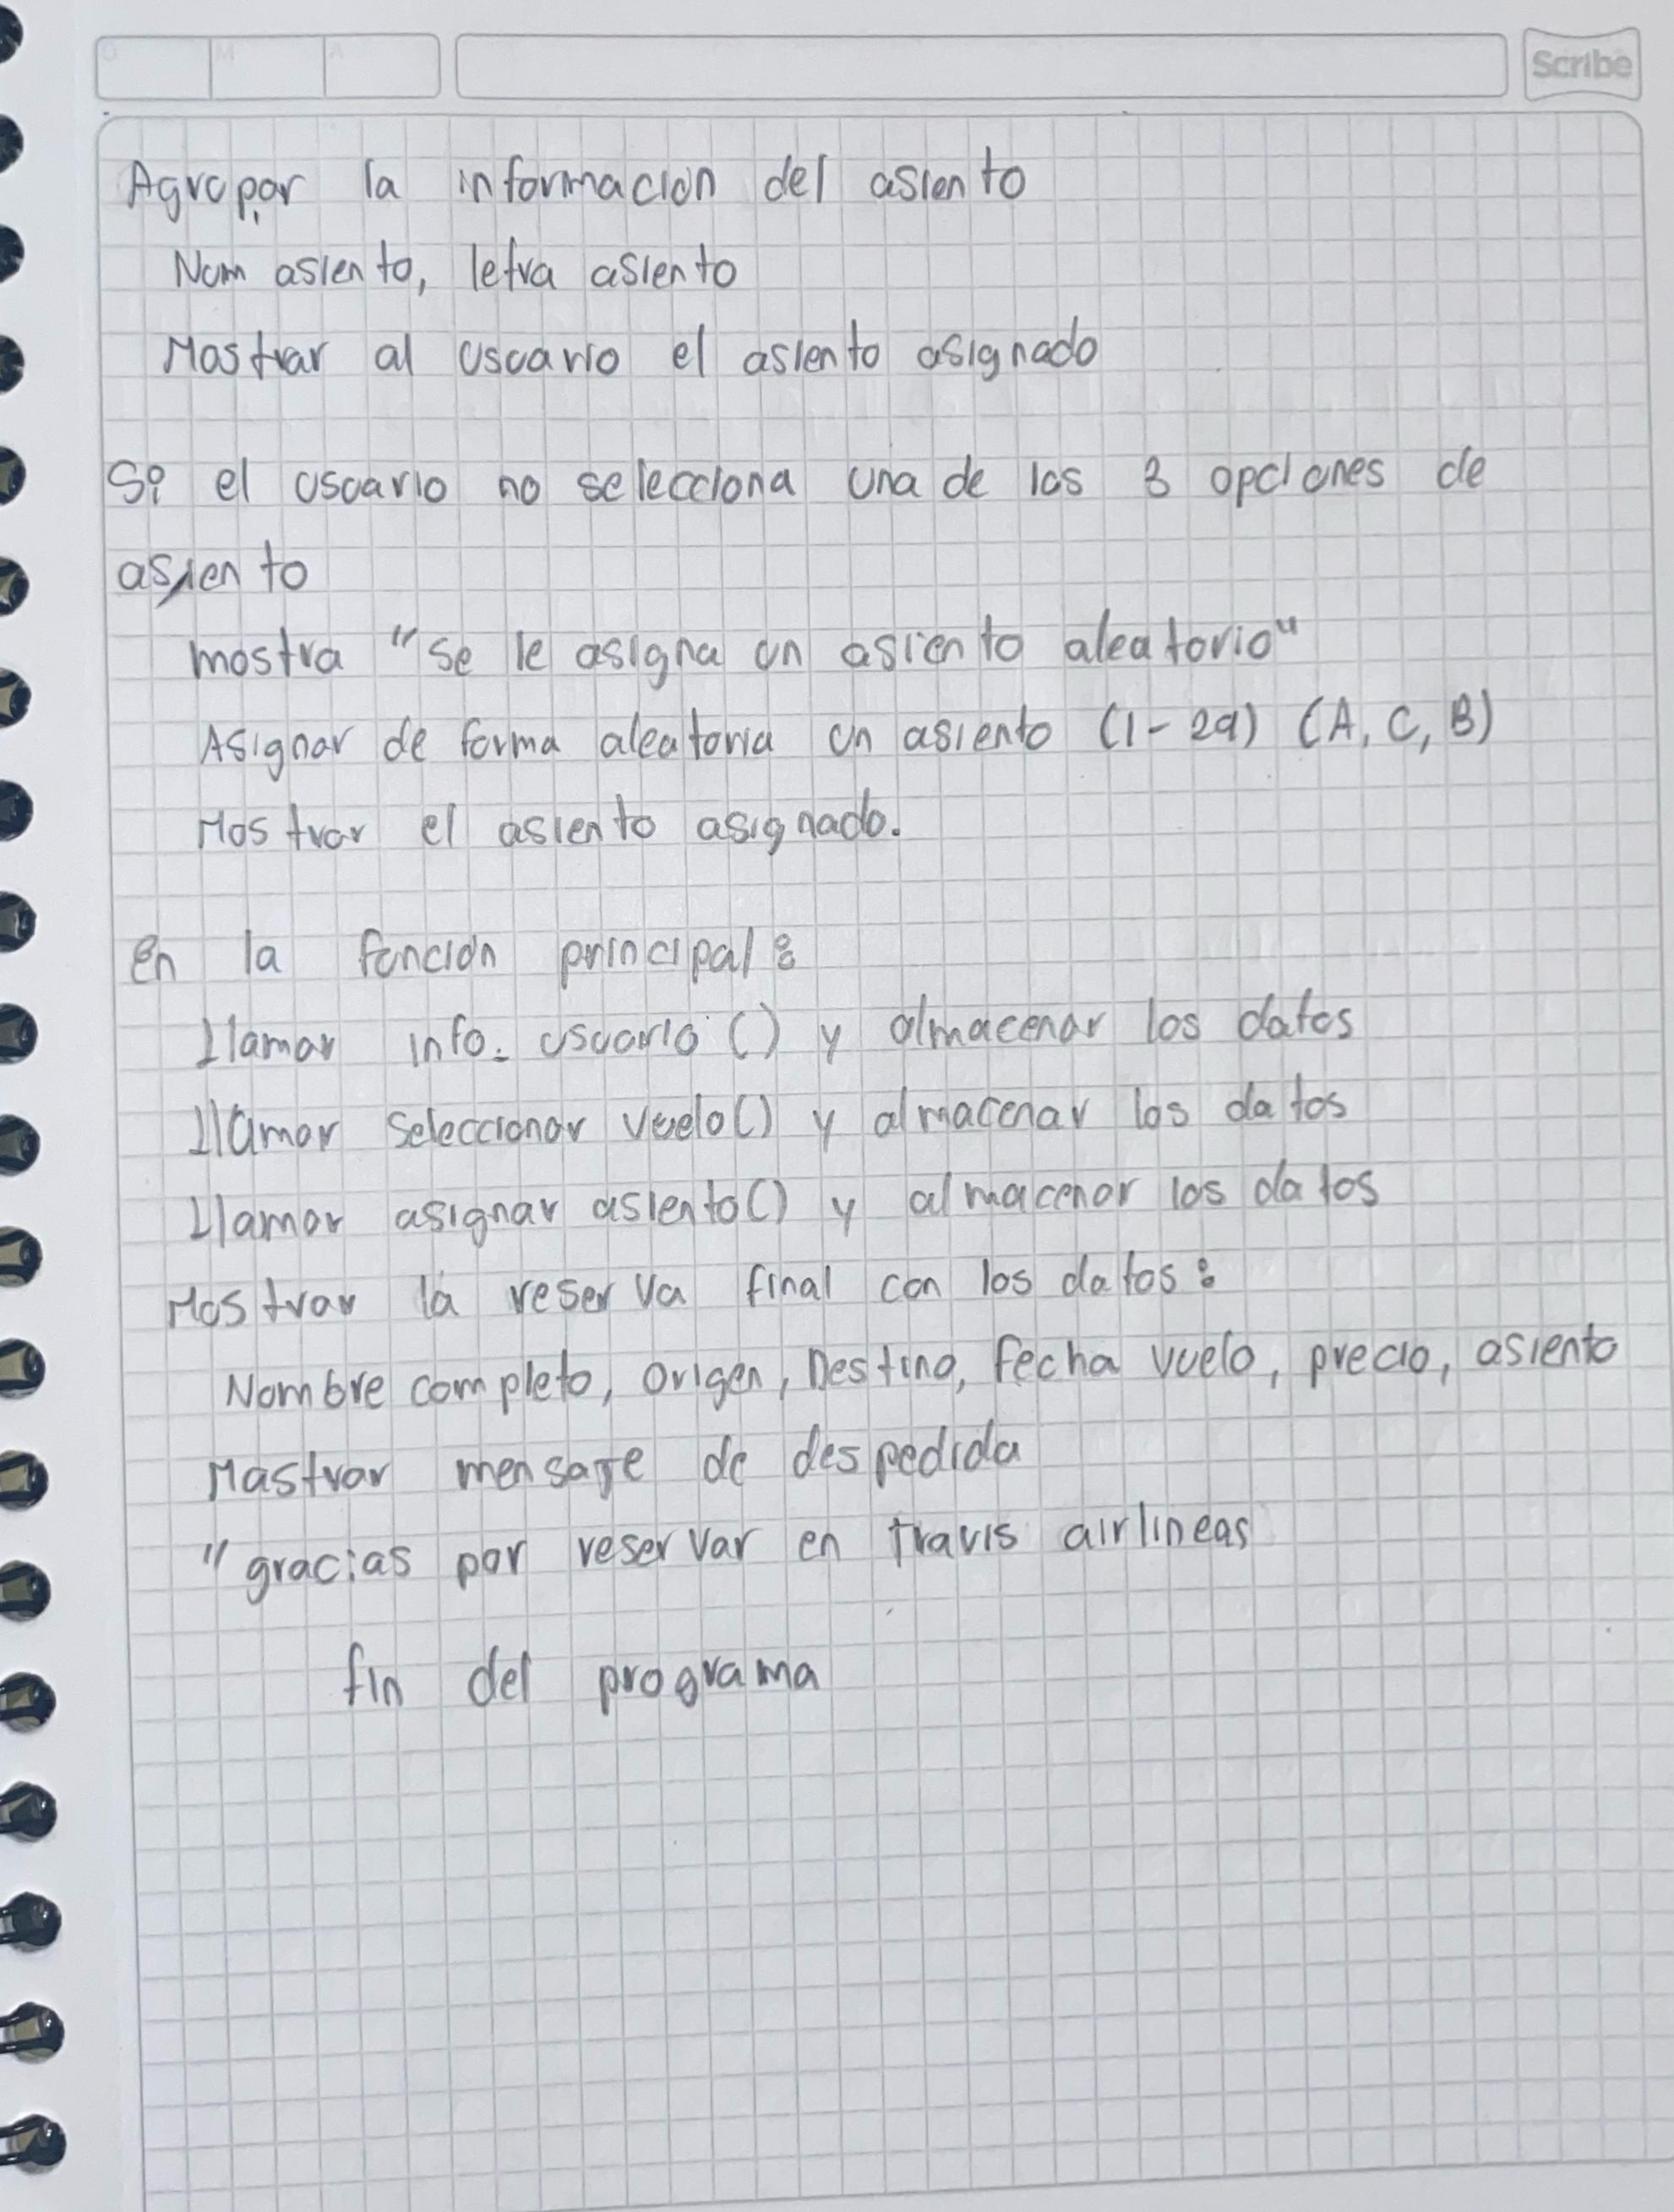 Scribe
Agrupar la informacion del asiento
Num asiento, letra asiento
Mostrar al usuario el asiento asignado
Si el usuario no selecciona una de las 3 opciones de
asiento
mostra "se le asigna un asiento aleatorio"
Asignar de forma aleatoria un asiento (1-29) (A, C, B)
Mostrar el asiento asignado.
En la función principal:
Llamar info_usuario() y almacenar los datos
Llamar seleccionar vuelo() y almacenar los datos
Llamar asignar asiento() y almacenar los datos
Mostrar la reserva final con los datos:
Nombre completo, origen, Destino, fecha vuelo, precio, asiento
Mostrar mensaje de despedida
"gracias por reservar en travis airlineas
fin del programa